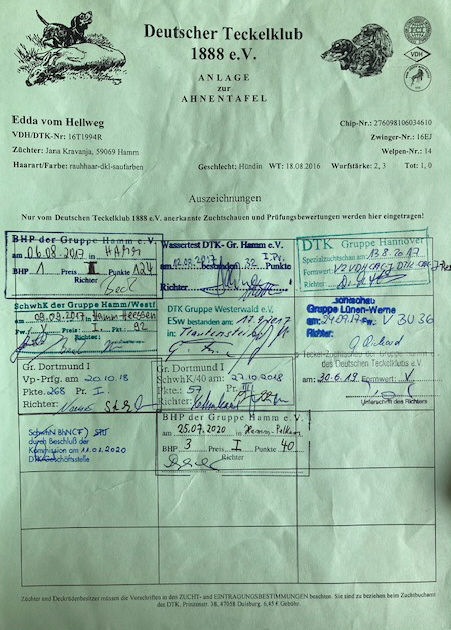 Deutscher Teckelklub
1888 e.V.
ANLAGE
zur
AHNENTAFEL
VDH
Edda vom Hellweg
VDH/DTK-Nr: 16T1994R
Züchter: Jana Kravanja, 59069 Hamm
Haarart/Farbe: rauhhaar-dkl-saufarben
Chip-Nr.: 276098106034610
Zwinger-Nr.: 16EJ
Welpen-Nr.: 14
Geschlecht: Hündin WT: 18.08.2016 Wurfstärke: 2, 3 Tot: 1, 0
Auszeichnungen
Nur vom Deutschen Teckelklub 1888 e.V. anerkannte Zuchtschauen und Prüfungsbewertungen werden hier eingetragen!
BHP der Gruppe Hamm e.V.
am 06.08.2017 in HAMM
BHP 1 Preis I Punkte 124
Richter
Wassertest DTK- Gr. Hamm e.V.
bestanden 32 Punkte
Richter
DTK Gruppe Hannover
Spezialzuchtschau am 13.8.2017
Formwert:
Richter
SchwhK der Gruppe Hamm/Westf
am 09.09.2017
Fw. Preis: I Pkt 92
DTK Gruppe Westerwald e.V.
ESW bestanden am
in
Gruppe Lünen-Werne
am: 24.09.17 Fw: V
Richter:
Gr. Dortmund I
Vp-Prfg. am 20.10.18
Pkte. 268 Pr. I.
Richter:
Gr. Dortmund I
SchwhK/40 am: 27.10.2018
Pkte.: 57 Pr. III
Richter:
des Deutschen Teckelklubs e.V.
am: 30.6.19 Formwert: V
Unterschrift des Richters
durch Beschluß der
Kommission am 11.01.2020
DTK-Geschäftsstelle
BHP der Gruppe Hamm e.V.
am 25.07.2020 in Hamm-Pelkum
BHP 3 Preis I Punkte 40
Richter
Züchter und Deckrüdenbesitzer müssen die Vorschriften in den ZUCHT- und EINTRAGUNGSBESTIMMUNGEN beachten. Sie sind zu beziehen beim Zuchtbuchamt
des DTK, Prinzenstr. 38, 47058 Duisburg. 6,45 € Gebühr.